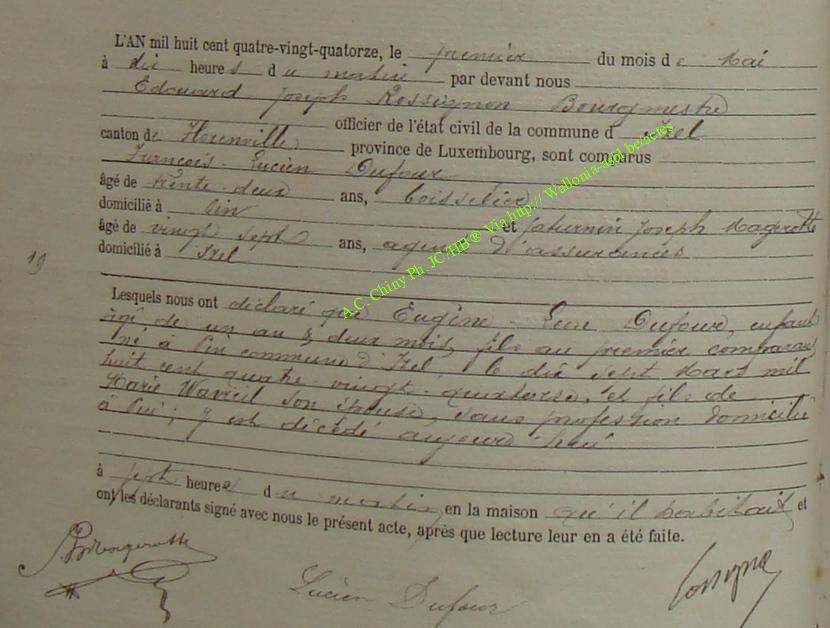 L'AN mil huit cent quatre-vingt-quatorze, le premier du mois de Mai
à dix heures du matin par devant nous
Edouard Joseph Rossignon Bourgmestre
officier de l'état civil de la commune d'Izel
canton de Florenville province de Luxembourg, sont comparus
François-Lucien Dufour
âgé de trente-deux ans, boisselier
domicilié à Pin et Saturnin Joseph Magerotte
âgé de vingt sept ans, agent d'assurances
domicilié à Izel
19
Lesquels nous ont déclaré que Eugène-Luc Dufour, enfant
âgé de un an & deux mois, fils au premier comparant
né à Pin commune d'Izel, le dix sept Mars mil
huit cent quatre-vingt-quatorze, et fils de
Marie Wavreil son épouse, sans profession domiciliée
à Pin; y est décédé aujourd'hui
à sept heures du matin, en la maison qu'il habitait et
ont les déclarants signé avec nous le présent acte, après que lecture leur en a été faite.
Magerotte
Lucien Dufour
A.C. Chiny Ph. JC/HB® Via http://Wallonia-asbl.be/actes